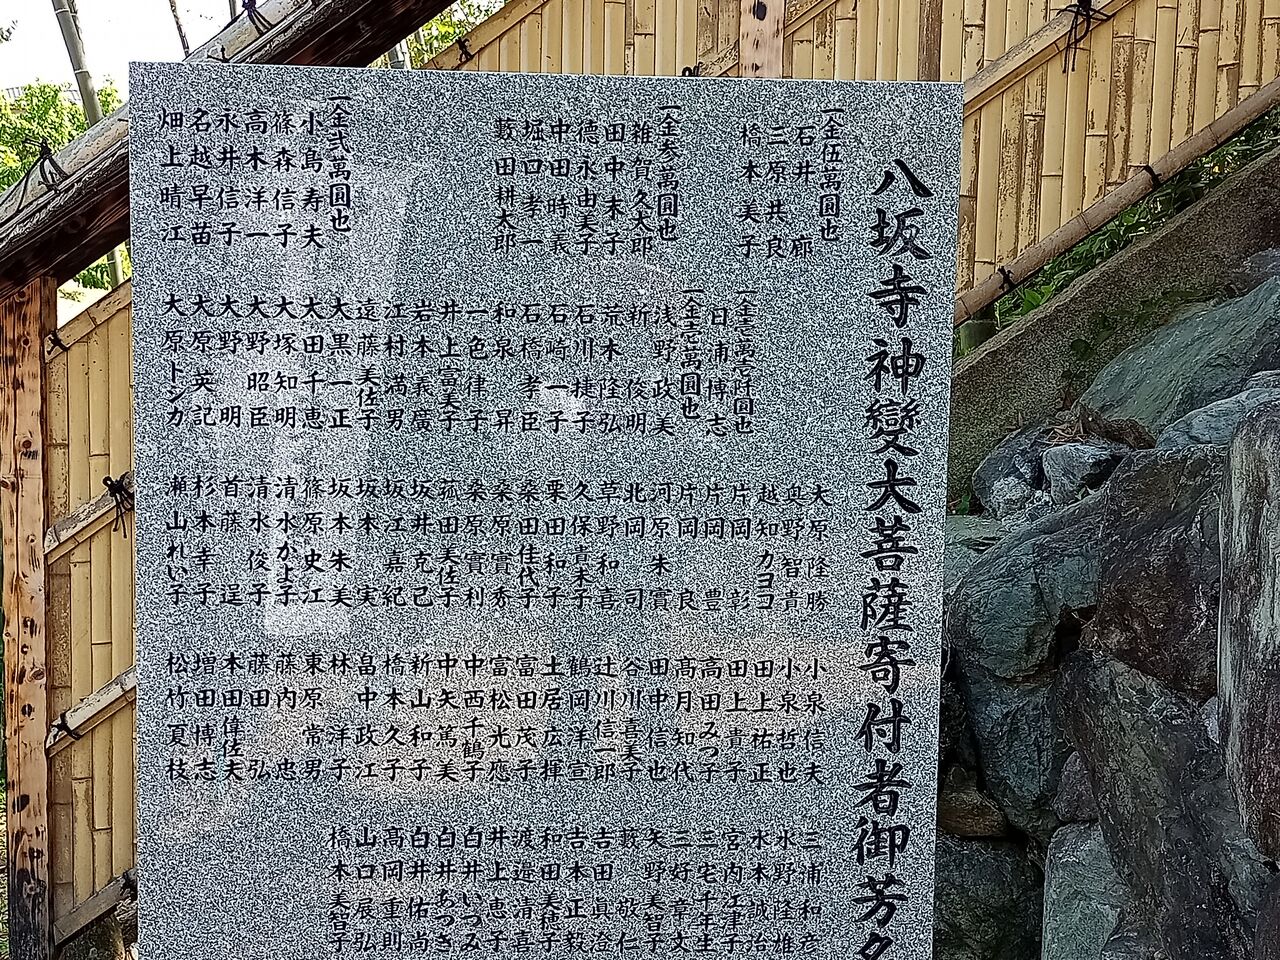 八坂寺神變大菩薩寄付者御芳
一金伍萬圓也
石井廊
三原共良
橋本美子
一金参萬圓也
雑賀久太郎
田中末子
德永由美子
中田時義
堀口孝一
藪田耕太郎
一金弐萬圓也
小島寿夫
篠森信子
高木洋一
永井信子
名越早苗
畑上晴江
一金壱萬亭阡圓也
日浦博志
一金壱萬圓也
浅野政美
新俊明
荒木隆弘
石川捷子
石崎一子
石橋孝臣
和泉昇
一色律子
井上富美子
岩本義廣
江村満男
遠藤美佐子
大黒一正
大田千恵
大塚知明
大野昭臣
大野明
大原英記
大原トシカ
大原隆勝
奥野智貴
越知カヨコ
片岡彰
片岡豊
片岡良
河原朱實
北岡司
草野和喜
久保喜末子
栗田和子
桑田佳代子
桑原實秀
桑原實利
菰田美佐子
坂井克己
坂江嘉紀
坂本実
坂本朱美
篠原史江
清水かよ子
清水俊子
首藤逞
杉本幸子
瀬山れい子
小泉信夫
小泉哲也
田上祐正
田上貴子
高田みつ子
髙月知代
田中信也
谷川喜美子
辻川信一郎
鶴岡洋宣
土居広揮
富田茂子
富松光應
中西千鶴子
中矢篤美
新山和子
橋本久子
畠中政江
林洋子
東原常男
藤内忠
藤田弘
本田偉佐夫
増田博志
松竹夏枝
三浦和彦
水野隆雄
水本誠治
宮内江津子
三宅千年生
三好章文
矢野美智子
藪敬仁
吉田眞澄
吉本正毅
和田美穂子
渡邉清喜
井上恵子
白井いつみ
白井あつき
白井佑尚
髙岡重則
山口展弘
橋本美智子